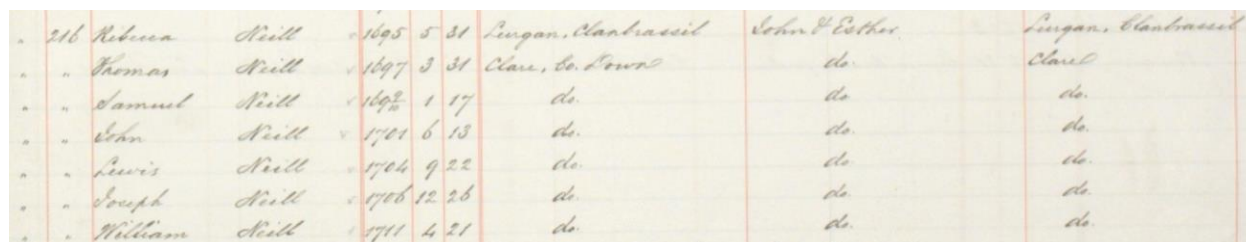 " 216 Rebecca Neill " 1695 5 31 Lurgan, Clanbrassil John & Esther Lurgan, Clanbrassil
" " Thomas Neill " 1697 3 31 Clare, Co. Down do. Clare
" " Samuel Neill " 1 17 do. do. do.
" " John Neill " 1701 6 13 do. do. do.
" " Lewis Neill " 1704 9 22 do. do. do.
" " Joseph Neill " 1706 12 26 do. do. do.
" " William Neill " 1711 4 21 do. do. do.